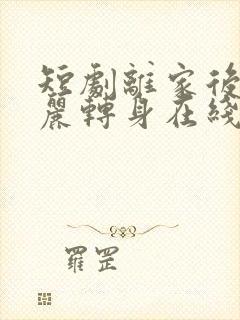 短劇離家後
麗轉身在綫
羅罡